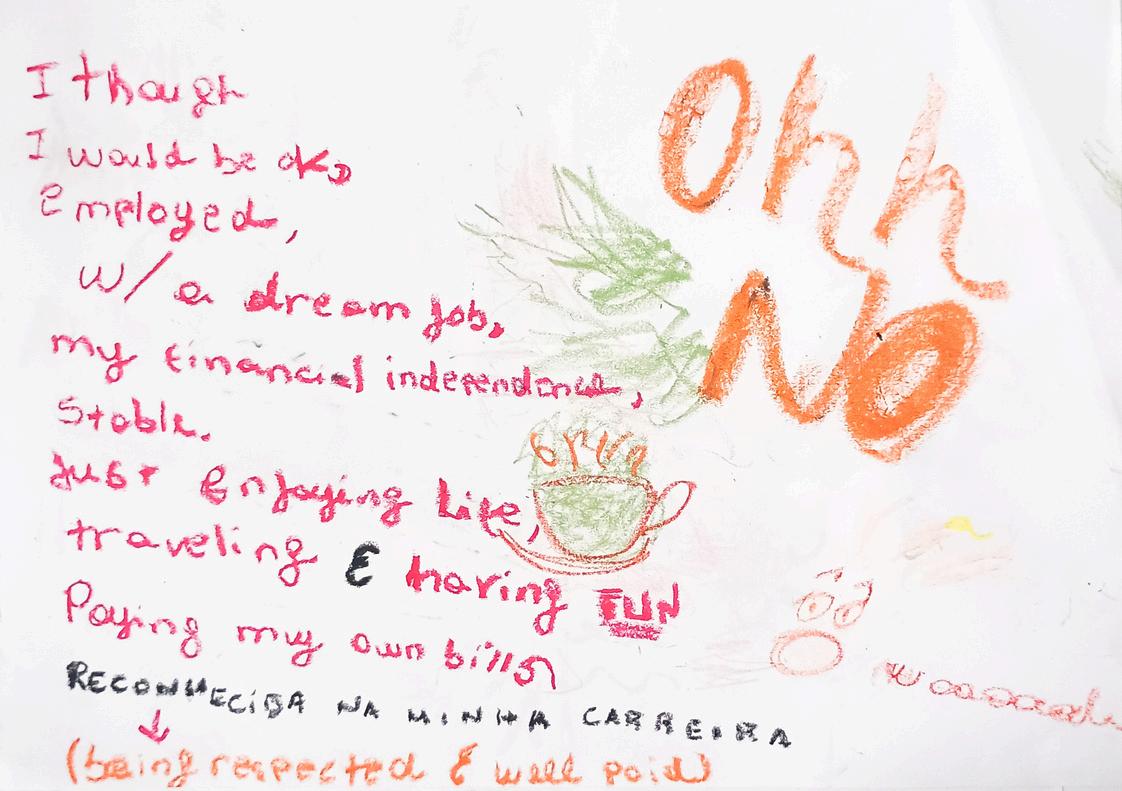 I though
I would be ok,
Employed,
w/ a dream job,
my financial independence,
Stable.
Just Enjoying Life,
traveling & having FUN
Paying my own bills
RECONHECIDA NA MINHA CARREIRA
(being respected & well paid)
Ohh
No